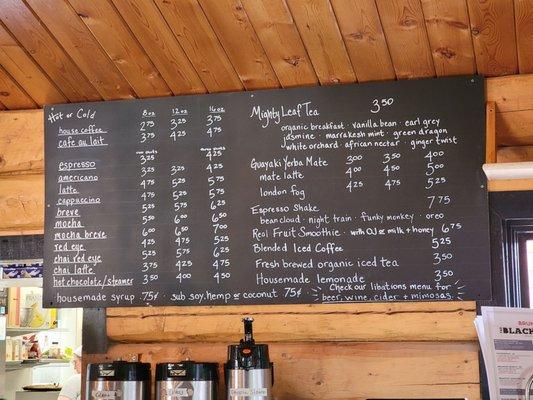 Hot or Cold 8oz 12oz 16oz
house coffee 2 75 3 25 3 75
cafe au lait 3 75 4 25 4 75
espresso 3 25 4 25
americano
latte 4 75 5 25 5 75
cappuccino 4 75 5 25 5 75
breve
mocha 5 50 6 00 6 50
mocha breve 6 00 6 50 7 00
red eye 4 25 4 75 5 25
chai red eye 5 25 5 75 6 25
chai latte
hot chocolate/steamer 3 50 4 00 4 50
housemade syrup .75¢ · sub soy, hemp or coconut 75¢
Mighty Leaf Tea 3 50
organic breakfast · vanilla bean · earl grey
jasmine · marrakesh mint · green dragon
white orchard · african nectar · ginger twist
Guayaki Yerba Mate 3 00 3 50 4 00
mate latte 4 00 4 50 5 00
london fog 4 25 4 75 5 25
Espresso Shake 7 75
bean cloud · night train · funky monkey · oreo
Real Fruit Smoothie · with OJ or milk + honey 6 75
Blended Iced Coffee 5 25
Fresh brewed organic iced tea 3 50
Housemade lemonade 3 50
Check our libations menu for
beer, wine, cider + mimosas
BLACK